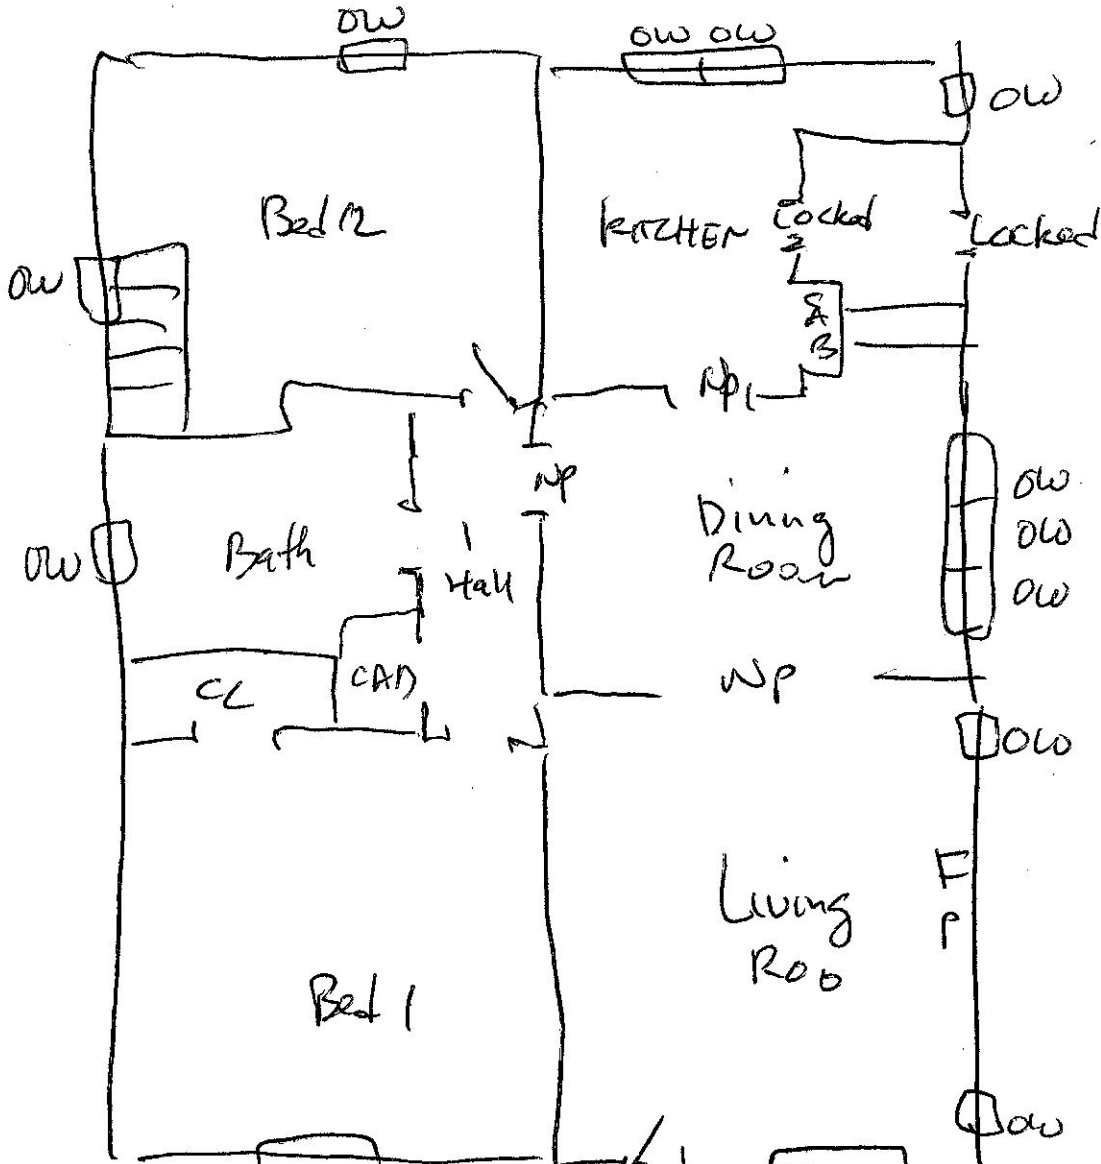 OW
OW OW
OW
Bed 2
KITCHEN
Locked
Locked
OW
CAB
NP
NP
Dining
Room
OW
OW
OW
OW
Bath
Hall
CL
CAB
NP
OW
Living
Roo
FP
Bed 1
OW